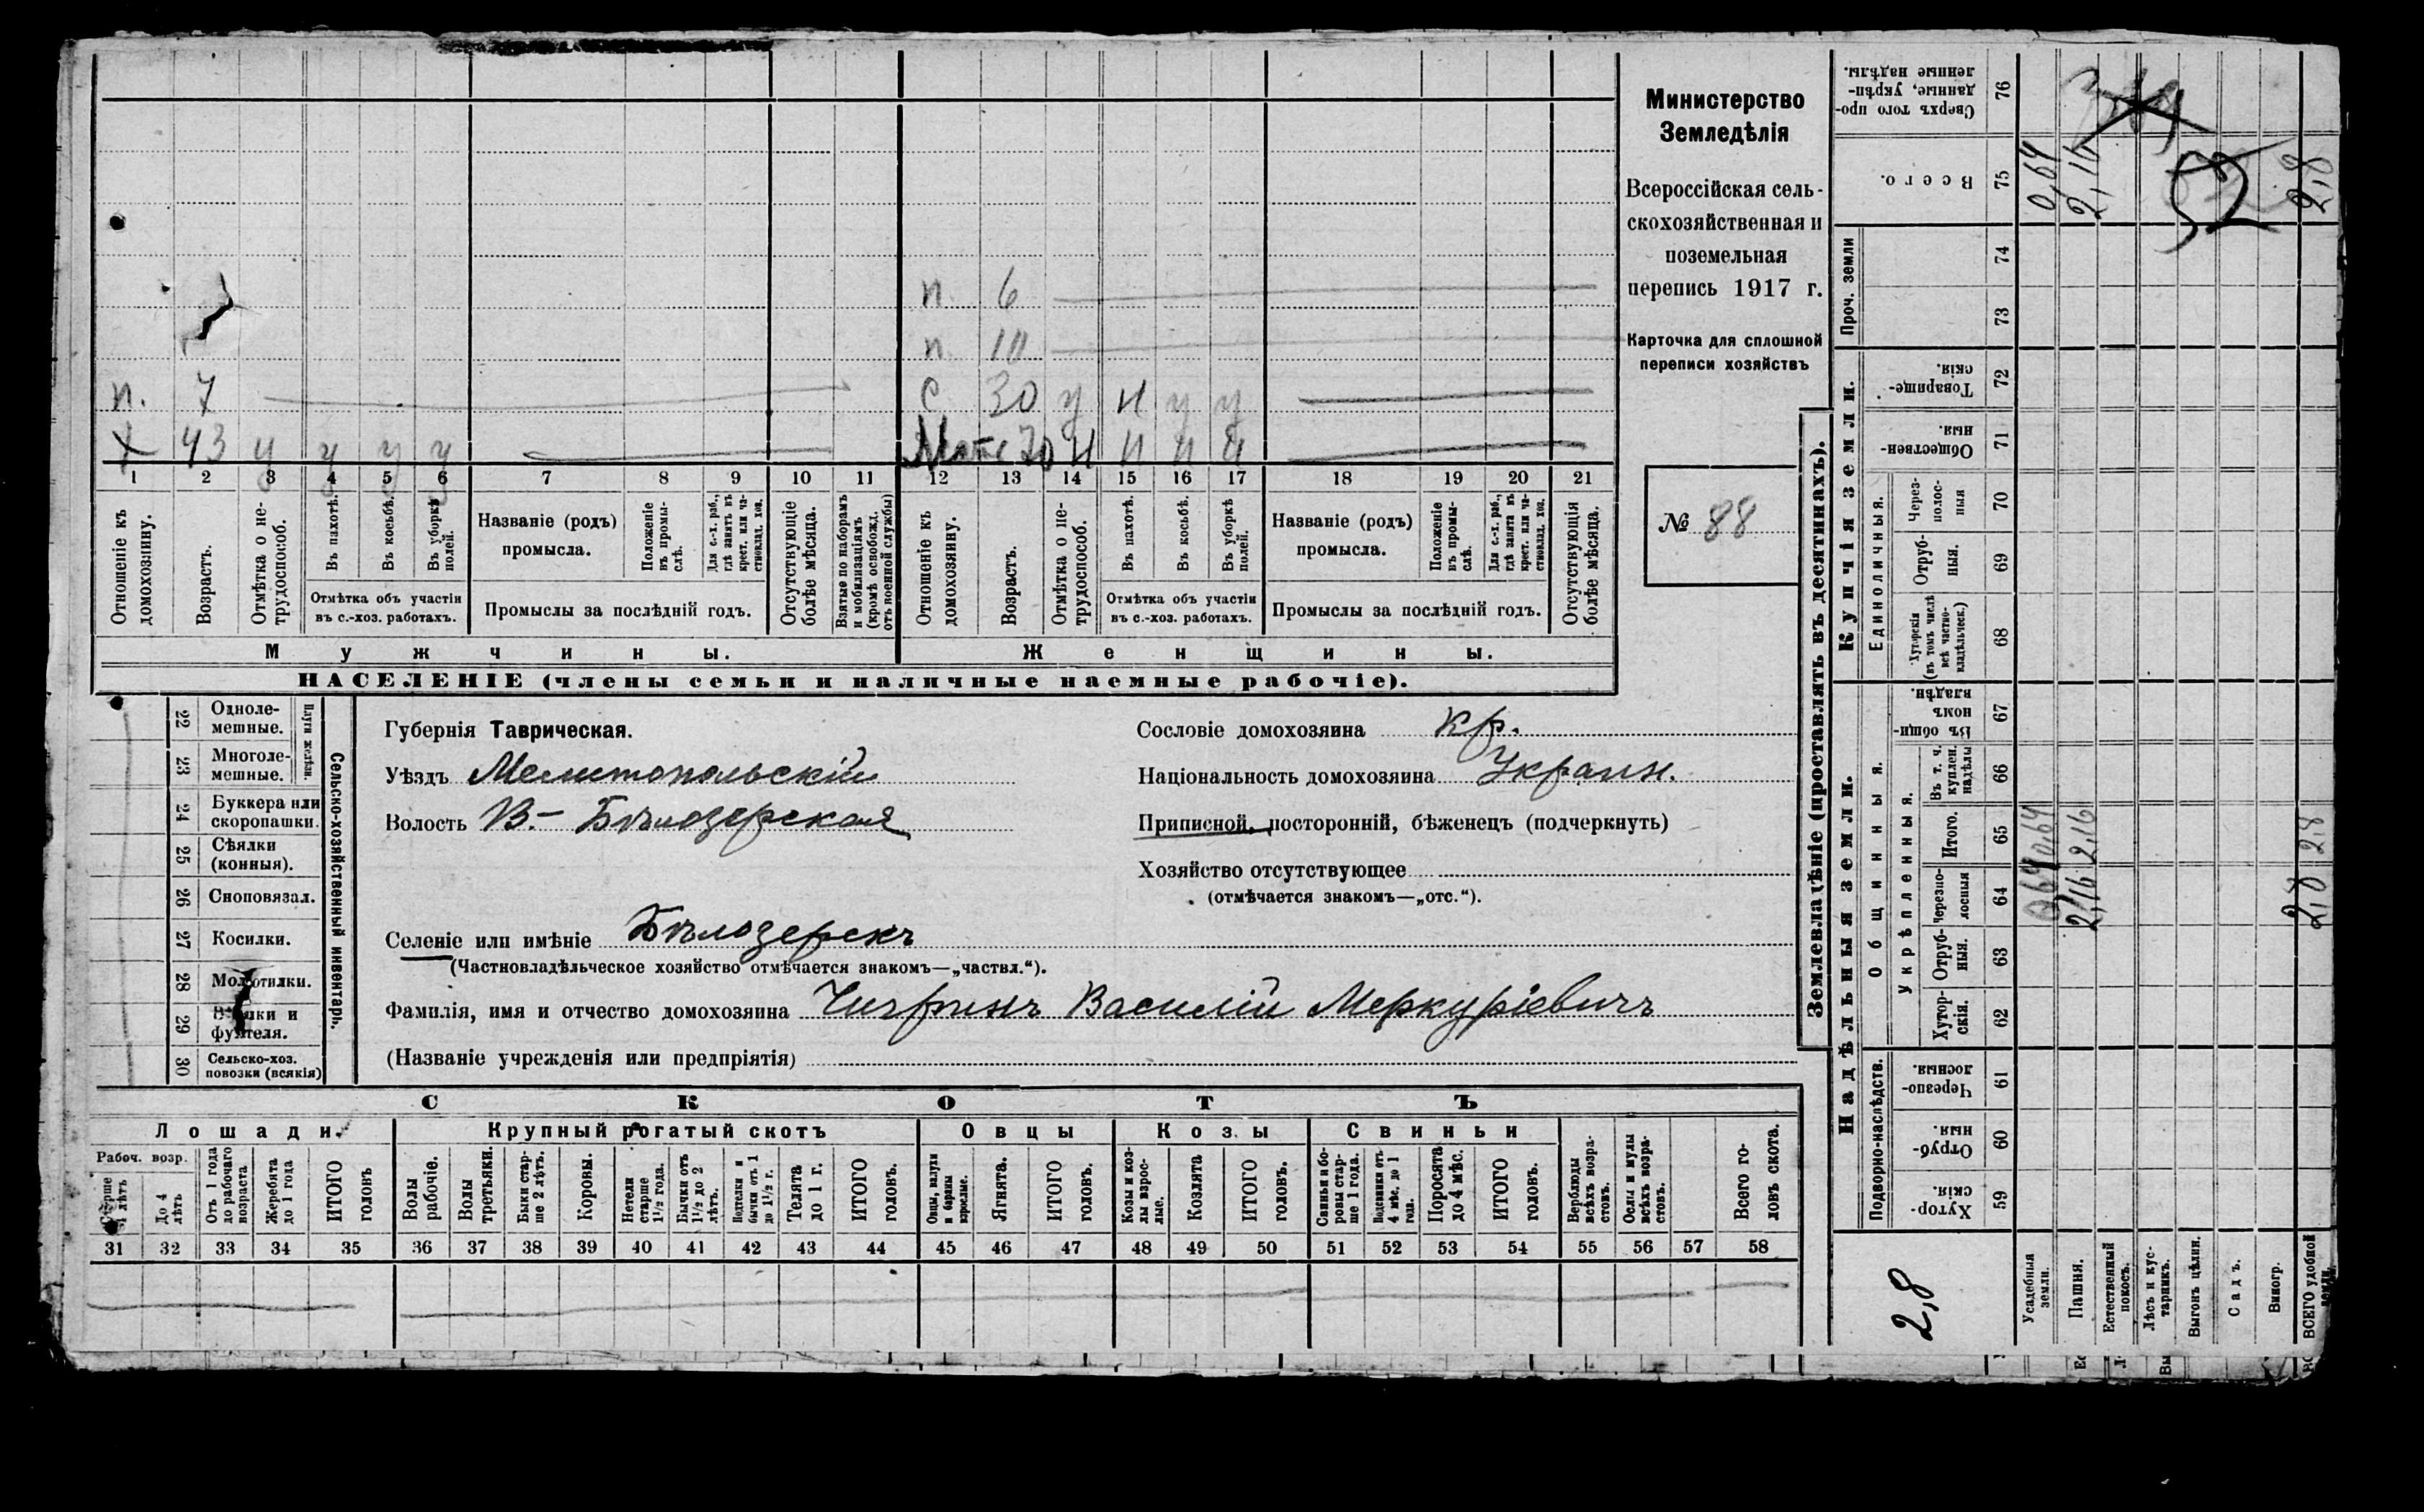 п. 6
п. 10
п. 7 с. 30 у н у у
х 43 у у у у Мать 70 н н н н
1 2 3 4 5 6 7 8 9 10 11 12 13 14 15 16 17 18 19 20 21
Отношеніе къ домохозяину.
Возрастъ.
Отмѣтка о не-
трудоспособ.
Въ пахотѣ.
Въ косьбѣ.
Въ уборкѣ полей.
Отмѣтка объ участіи
въ с.-хоз. работахъ.
Названіе (родъ)
промысла.
Положеніе
въ промы-
слѣ.
Для с.-х. раб.,
гдѣ занятъ въ
крест. или ча-
стновлад. хоз.
Промыслы за послѣдній годъ.
Отсутствующіе
болѣе мѣсяца.
Взятые по наборамъ
и мобилизаціямъ
(кромѣ освобожд.
отъ военной службы)
Отношеніе къ
домохозяину.
Возрастъ.
Отмѣтка о не-
трудоспособ.
Въ пахотѣ.
Въ косьбѣ.
Въ уборкѣ
полей.
Отмѣтка объ участіи
въ с.-хоз. работахъ.
Названіе (родъ)
промысла.
Положеніе
въ промы-
слѣ.
Для с.-х. раб.,
гдѣ занята въ
крест. или ча-
стновлад. хоз.
Промыслы за послѣдній годъ.
Отсутствующія
болѣе мѣсяца.
Мужчины.
Женщины.
НАСЕЛЕНІЕ (члены семьи и наличные наемные рабочіе).
Министерство
Земледѣлія
Всероссійская сель-
скохозяйственная и
поземельная
перепись 1917 г.
Карточка для сплошной
переписи хозяйствъ
№ 88
22 Одноле-
мешные.
23 Многоле-
мешные.
Плуги желѣзн.
24 Буккера или
скоропашки.
25 Сѣялки
(конныя).
26 Сноповязал.
27 Косилки.
28 Молотилки.
29 Вѣялки и
фухтеля.
30 Сельско-хоз.
повозки (всякія)
Сельско-хозяйственный инвентарь.
Губернія Таврическая.
Уѣздъ Мелитопольскій
Волость В.- Бѣлозерская
Сословіе домохозяина кр.
Національность домохозяина Украин.
Приписной, посторонній, бѣженецъ (подчеркнуть)
Хозяйство отсутствующее
(отмѣчается знакомъ—„отс.“).
Селеніе или имѣніе Бѣлозерскъ
(Частновладѣльческое хозяйство отмѣчается знакомъ—„частвл.“).
Фамилія, имя и отчество домохозяина Чигринъ Василій Меркуріевичъ
(Названіе учрежденія или предпріятія)
СКОТЪ
Лошади.
Крупный рогатый скотъ
Овцы
Козы
Свиньи
Рабоч. возр.
Старше
4 лѣтъ
До 4
лѣтъ
Отъ 1 года
до рабочаго
возраста
Жеребята
до 1 года
ИТОГО
головъ
Волы
рабочіе.
Волы
третьяки.
Быки стар-
ше 2 лѣтъ.
Коровы.
Нетели
старше
1½ года.
Бычки отъ
1½ до 2
лѣтъ.
Подтелки и
бычки отъ 1
до 1½ г.
Телята
до 1 г.
ИТОГО
головъ.
Овцы, валухи
и бараны
взрослые.
Ягнята.
ИТОГО
головъ.
Козы и коз-
лы взрос-
лые.
Козлята
ИТОГО
головъ.
Свиньи и бо-
ровы стар-
ше 1 года.
Подсвинки отъ
4 мѣс. до 1
года.
Поросята
до 4 мѣс.
ИТОГО
головъ.
Верблюды
всѣхъ возра-
стовъ.
Ослы и мулы
всѣхъ возра-
стовъ.
Всего го-
ловъ скота.
31 32 33 34 35 36 37 38 39 40 41 42 43 44 45 46 47 48 49 50 51 52 53 54 55 56 57 58
Землевладѣніе (проставлять въ десятинахъ).
Надѣльныя земли.
Купчія земли.
Проч. земли
Подворно-наслѣдств.
Общинныя.
Укрѣпленныя.
Единоличныя.
Хутор-
скія.
59
Отруб-
ныя.
60
Черезпо-
лосныя.
61
Хутор-
скія.
62
Отруб-
ныя.
63
Черезпо-
лосныя
64
Итого.
65
Въ т. ч.
куплен.
надѣлы
66
Въ общин-
номъ
владѣн.
67
Хуторскія
(въ томъ числѣ
всѣ частно-
владѣльческ.)
68
Отруб-
ныя.
69
Через-
полос-
ныя
70
Обществен-
ныя.
71
Товарище-
скія.
72
73
74
Всего.
75
Сверхъ того про-
данные, укрѣп-
ленные надѣлы.
76
2,8
Усадебныя
земли. 0,64 0,64 0,64
Пашня. 2,16 2,16 2,16
Естественный
покосъ.
Лѣсъ и кус-
тарникъ.
Выгонъ цѣлин.
Садъ.
Виногр.
ВСЕГО удобной
земли. 2,8 2,8 2,8
52